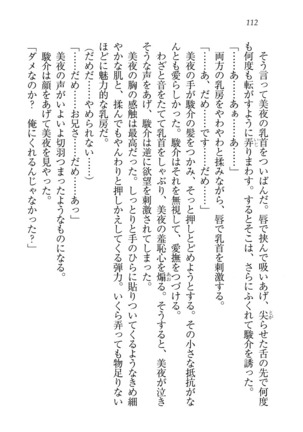 112
そう言って美夜の乳首をついばんだ。唇で挟んで吸いあげ、尖らせた舌の先で何度
も何度も転がすように弄りまわす。するとそこは、さらにふくれて駿介を誘った。
「……あ、だめ……ぁ……あ……」
両方の乳房をやわやわと揉みながら、唇で乳首を刺激する。
「……あ、だめ……です……だめ……」
美夜の手が駿介の髪をつかみ、そっと押しとどめようとする。その小さな抵抗がな
んとも愛らしかった。駿介はそれを無視して、愛撫をつづける。
わざと音をたてて乳首をしゃぶり、美夜の羞恥心を煽る。そうすると、美夜が泣き
そうな声をあげ、駿介は逆に欲望を刺激されてしまった。
美夜の胸の感触は最高だった。しっとりと手のひらに貼りついてくるようなきめ細
やかな肌と、揉んでもやんわりと押しかえしてくる弾力。いくら弄っても物足りない
ほどに魅力的な乳房だ。
(だめだ……やめられない……)
「……だめ……お兄さ……だめ……あっ」
美夜の声がいよいよ切羽つまったようなものになる。
駿介は顔をあげて美夜を見やった。
「ダメなのか？　俺にくれるんじゃなかった？」